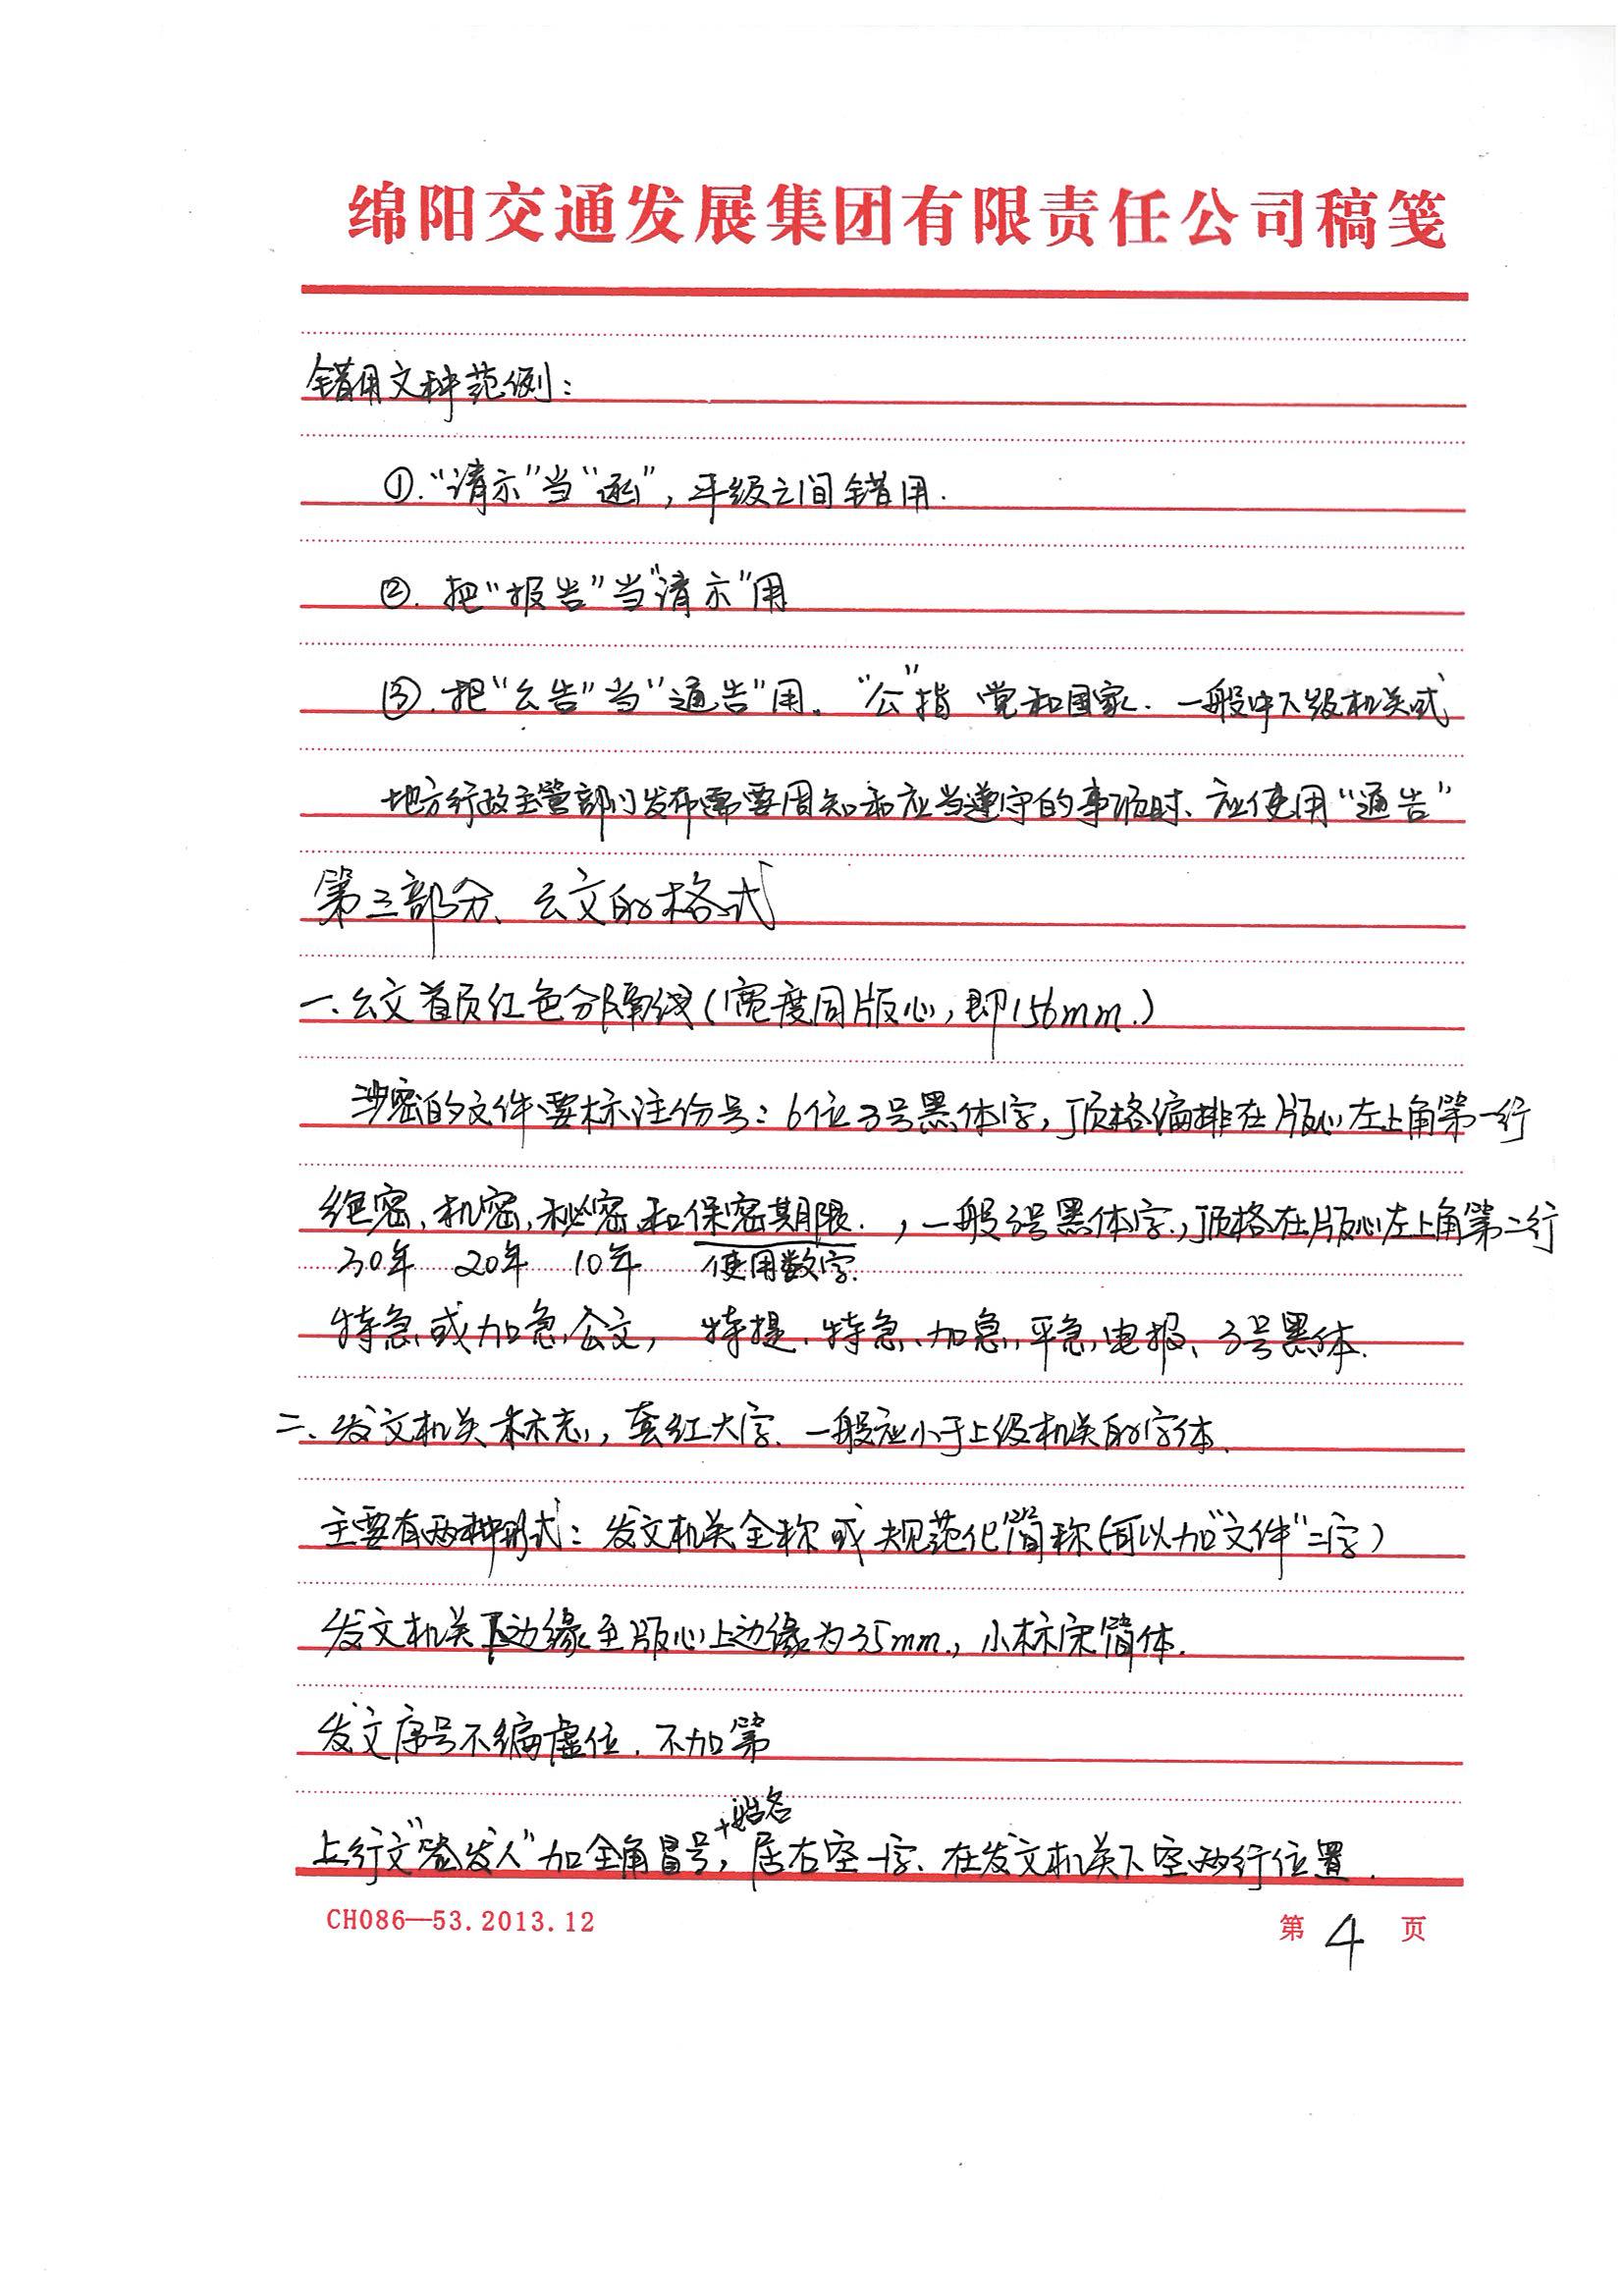 绵阳交通发展集团有限责任公司稿笺
错用文种范例：
①."请示"当"函"，平级之间错用.
②. 把"报告"当"请示"用
③. 把"公告"当"通告"用。"公"指党和国家. 一般中下级机关或
地方行政主管部门发布需要周知和应当遵守的事项时、应使用"通告"
第三部分、公文的格式
一、公文首页红色分隔线（宽度同版心，即156mm.）
涉密的文件要标注份号：6位3号黑体字，顶格编排在版心左上角第一行
绝密、机密、秘密和保密期限.，一般3号黑体字.，顶格在版心左上角第二行
30年 20年 10年 使用数字.
特急或加急公文， 特提、特急、加急，平急，电报、3号黑体.
二、发文机关标志，套红大字、一般应小于上级机关的字体、
主要有两种形式：发文机关全称或规范化简称（可以加"文件"二字）
发文机关下边缘至版心上边缘为35mm.，小标宋简体.
发文序号不编虚位，不加第
+姓名
上行文"签发人"加全角冒号，居右空一字、在发文机关下空两行位置.
CH086—53.2013.12
第 4 页